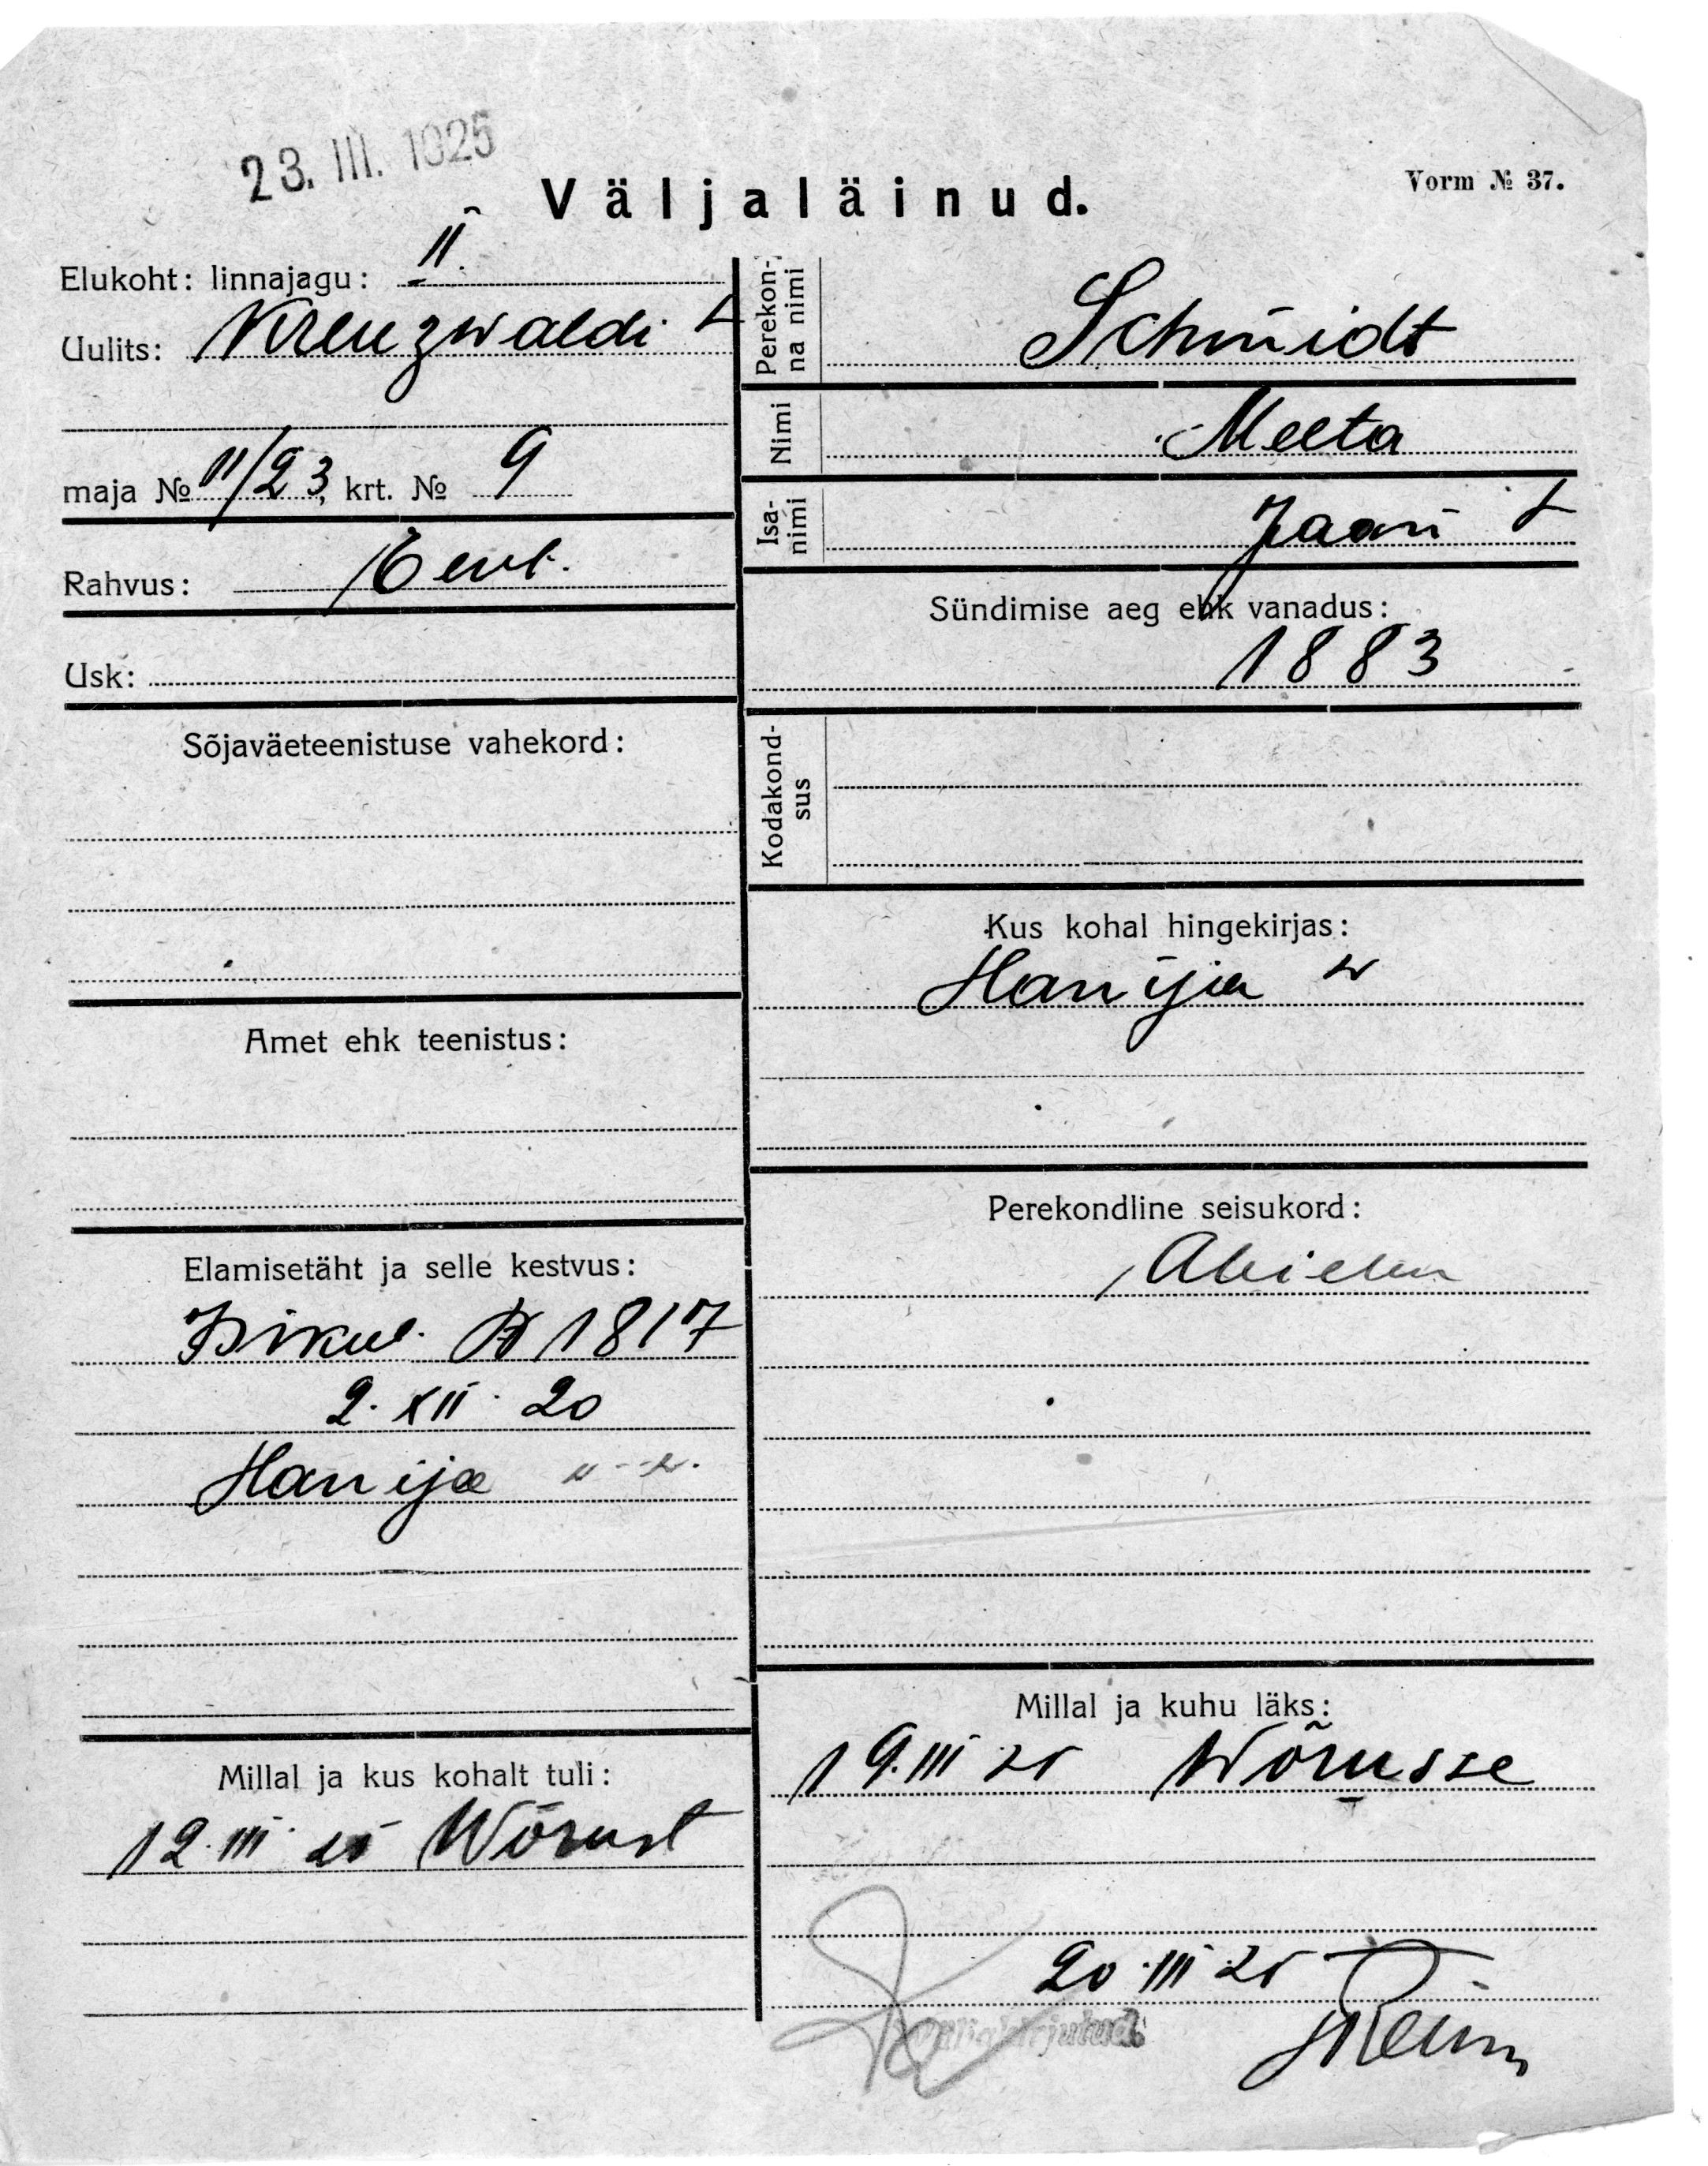 23. III. 1925
Väljaläinud.
Vorm № 37.
Elukoht: linnajagu: II.
Uulits: Kreuzwaldi t
maja № 11/23, krt. № 9
Rahvus: Eest.
Usk:
Sõjaväeteenistuse vahekord:
Amet ehk teenistus:
Elamisetäht ja selle kestvus:
Isikut. № 1817
2. XII. 20
Hanija
Millal ja kus kohalt tuli:
12. III 25 Wõrust
Perekon-
na nimi
Schmidt
Nimi
Meeta
Isa-
nimi
Jaani t
Sündimise aeg ehk vanadus:
1883
Kodakond-
sus
Kus kohal hingekirjas:
Hanija w
Perekondline seisukord:
Abielus
Millal ja kuhu läks:
19. III 25 Wõrusse
20. III 25